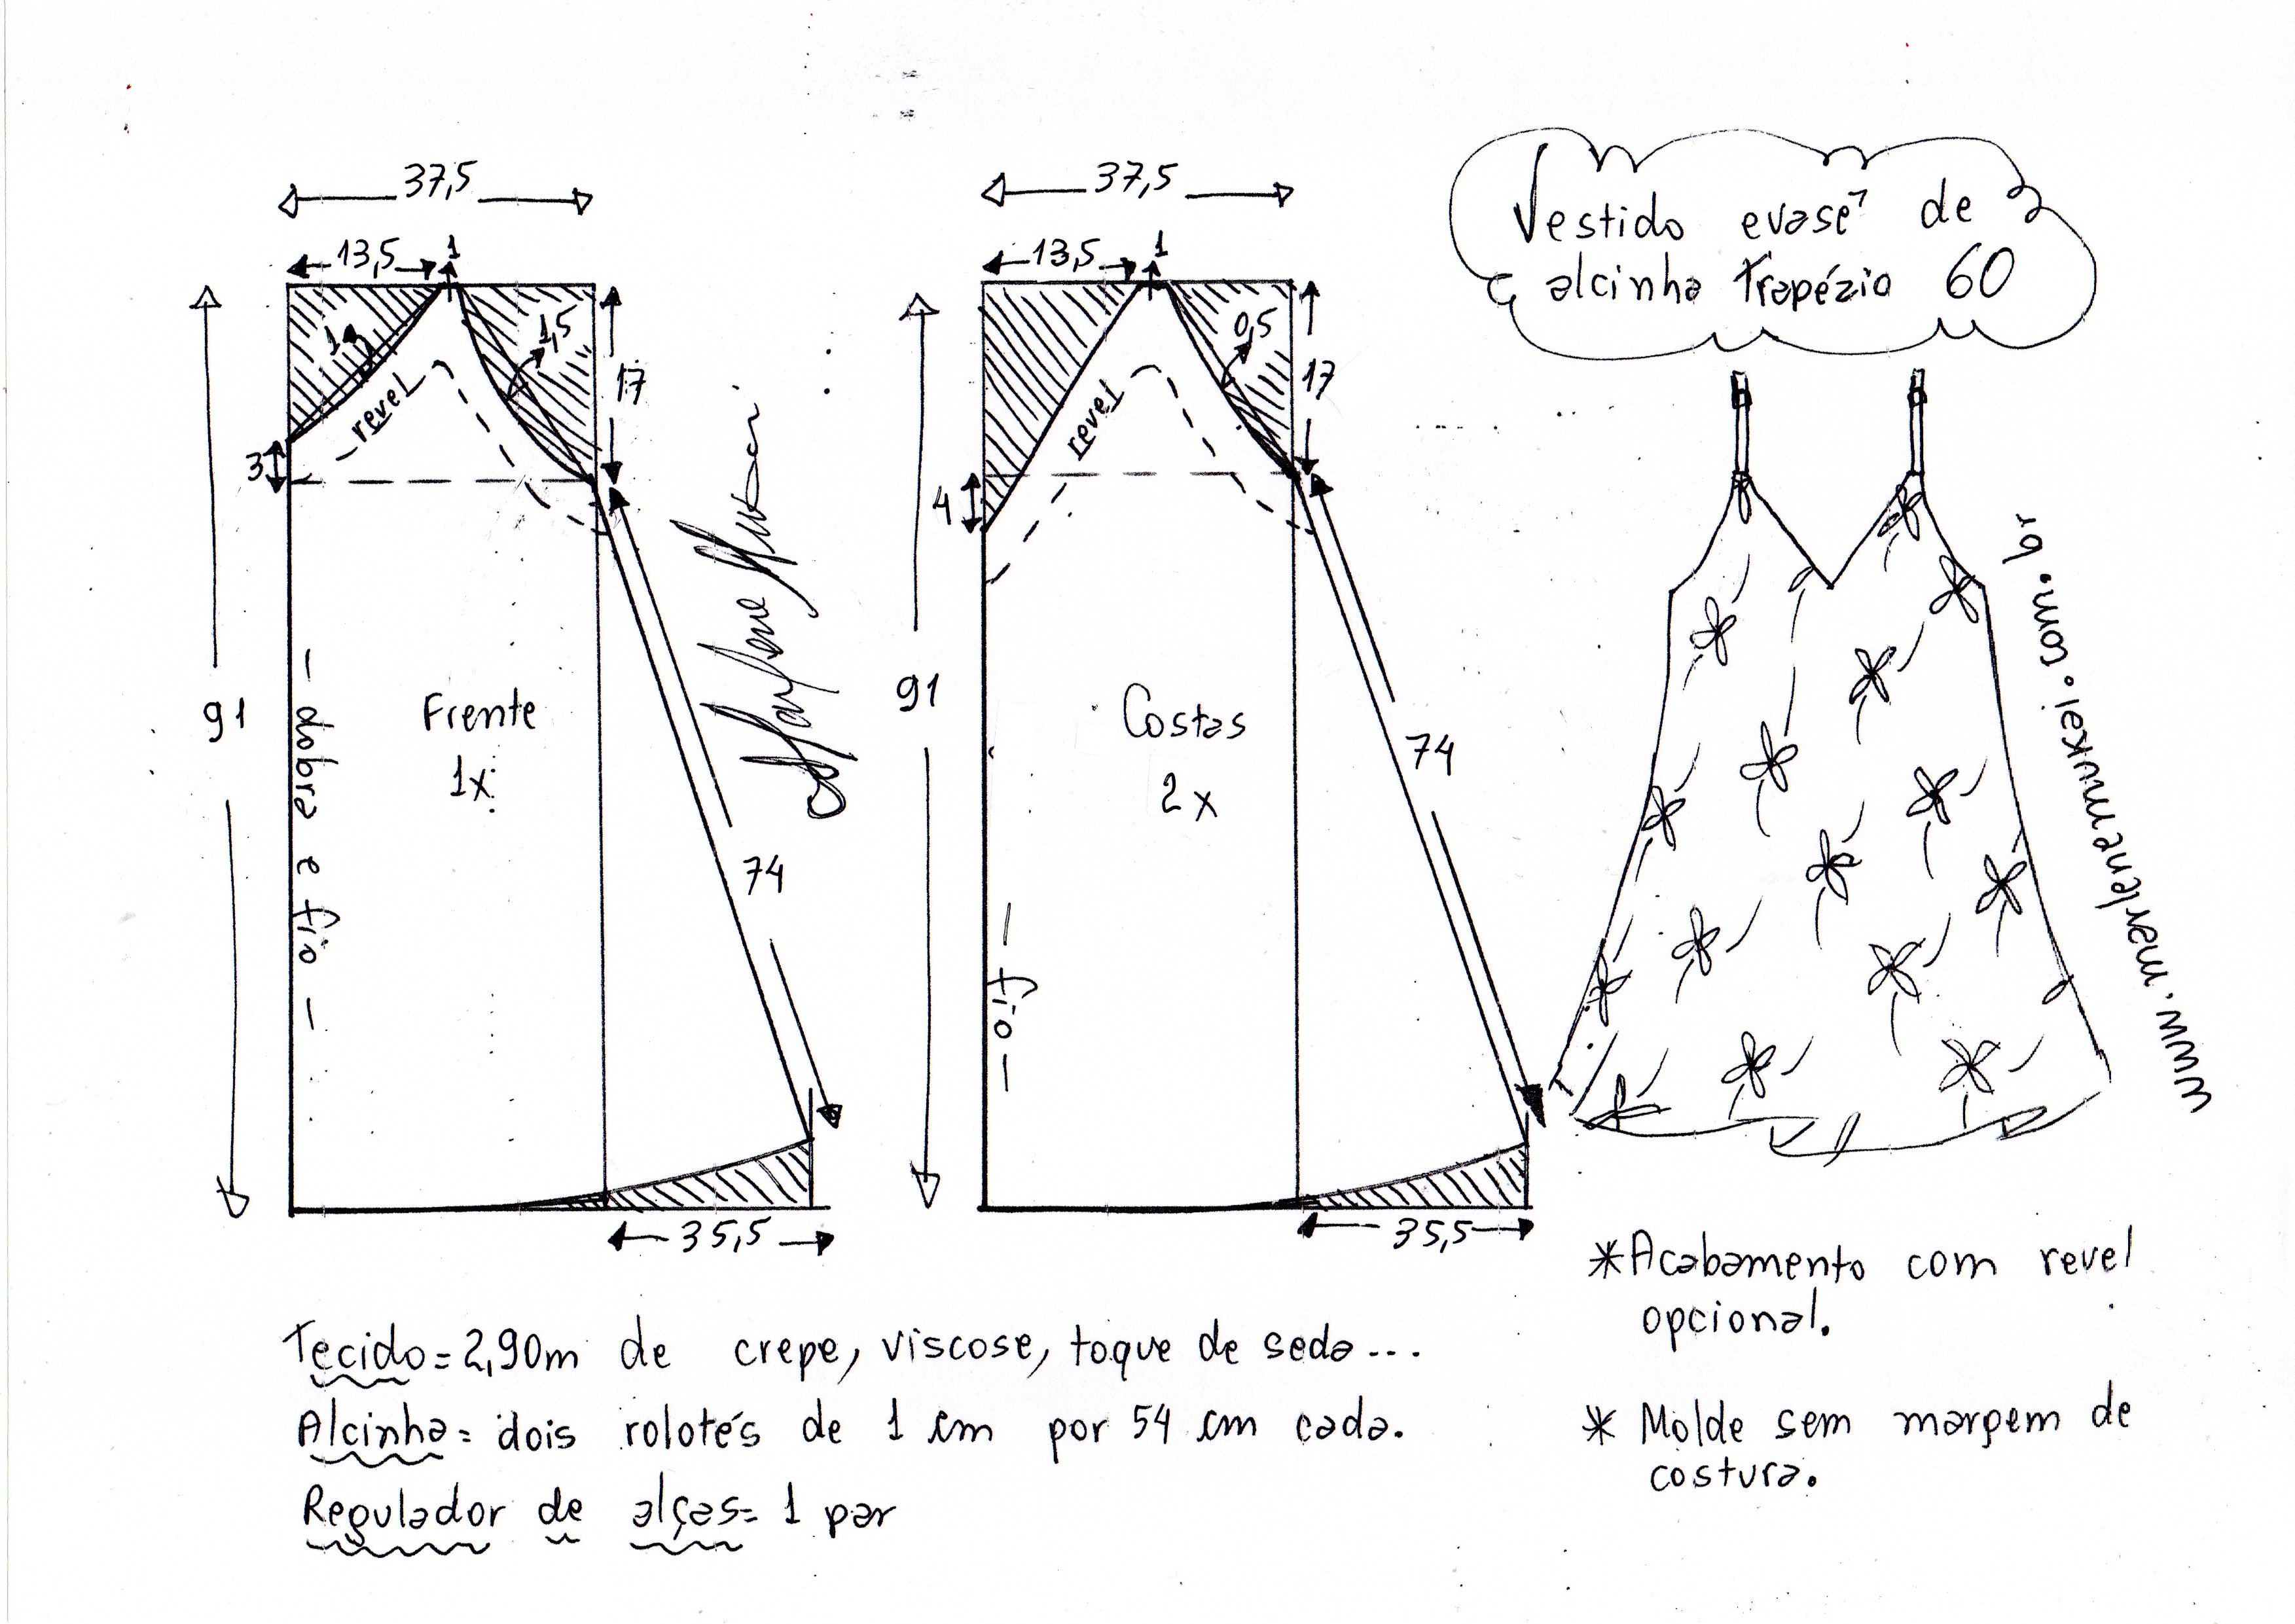 37,5
13,5
1
1
1,5
17
revel
3
91
Frente
1x
- dobra e fio -
74
35,5
37,5
13,5
1
0,5
17
revel
4
91
Costas
2x
- fio -
74
35,5
Vestido evasé de
alcinha Trapézio 60
www.marlenemukai.com.br
Tecido = 2,90m de crepe, viscose, toque de seda...
Alcinha = dois rolotés de 1 cm por 54 cm cada.
Regulador de alças = 1 par
* Acabamento com revel
opcional.
* Molde sem margem de
costura.